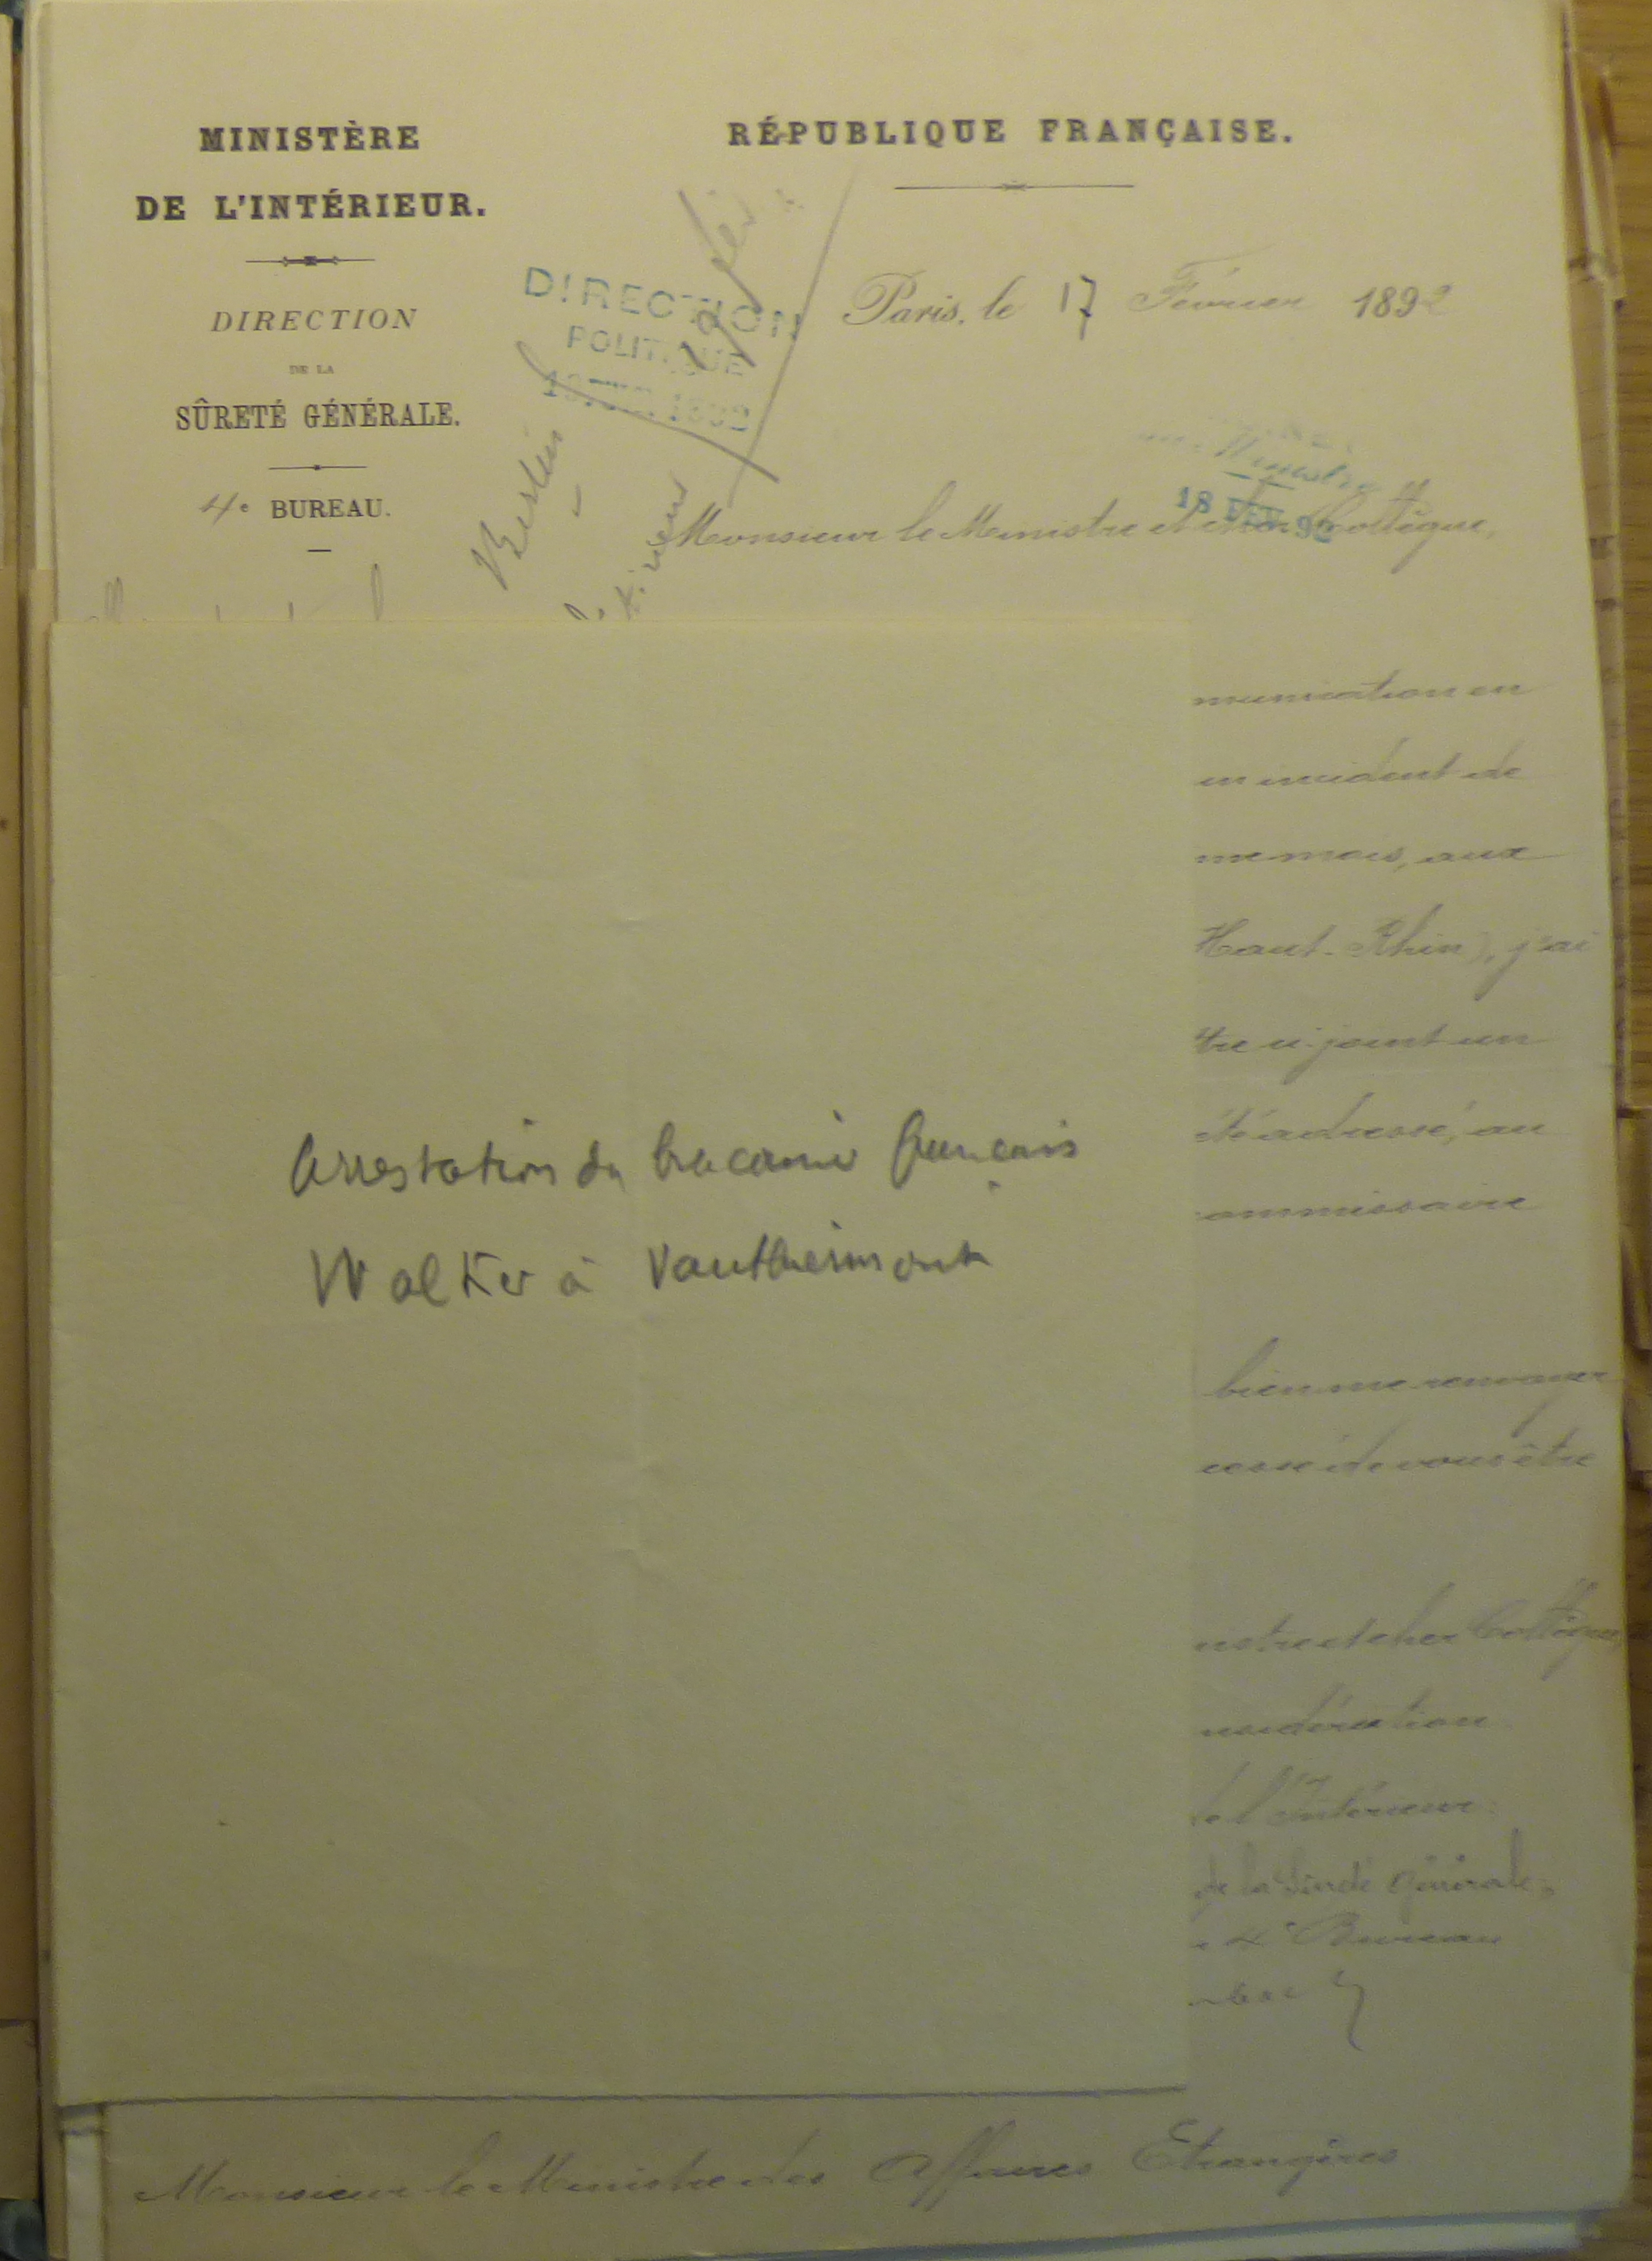 MINISTÈRE
DE L'INTÉRIEUR.
DIRECTION
DE LA
SÛRETÉ GÉNÉRALE.
4e BUREAU.
RÉPUBLIQUE FRANÇAISE.
DIRECTION
POLITIQUE
1892
Paris, le 17 Février 1892
Berlin
18 FEV 92
Monsieur le Ministre et cher Collègue,
munication en
incident de
me mois, aux
Haut-Rhin), j'ai
tre ci-joint un
été adressé, au
ommissaire
bien me renvoyer
cessé de vous être
nistre et cher Collègue,
nsidération
de l'Intérieur
de la Sûreté Générale,
4e Bureau
Arrestation du braconnier français
Walker à Vauthiermont
Monsieur le Ministre des Affaires Etrangères